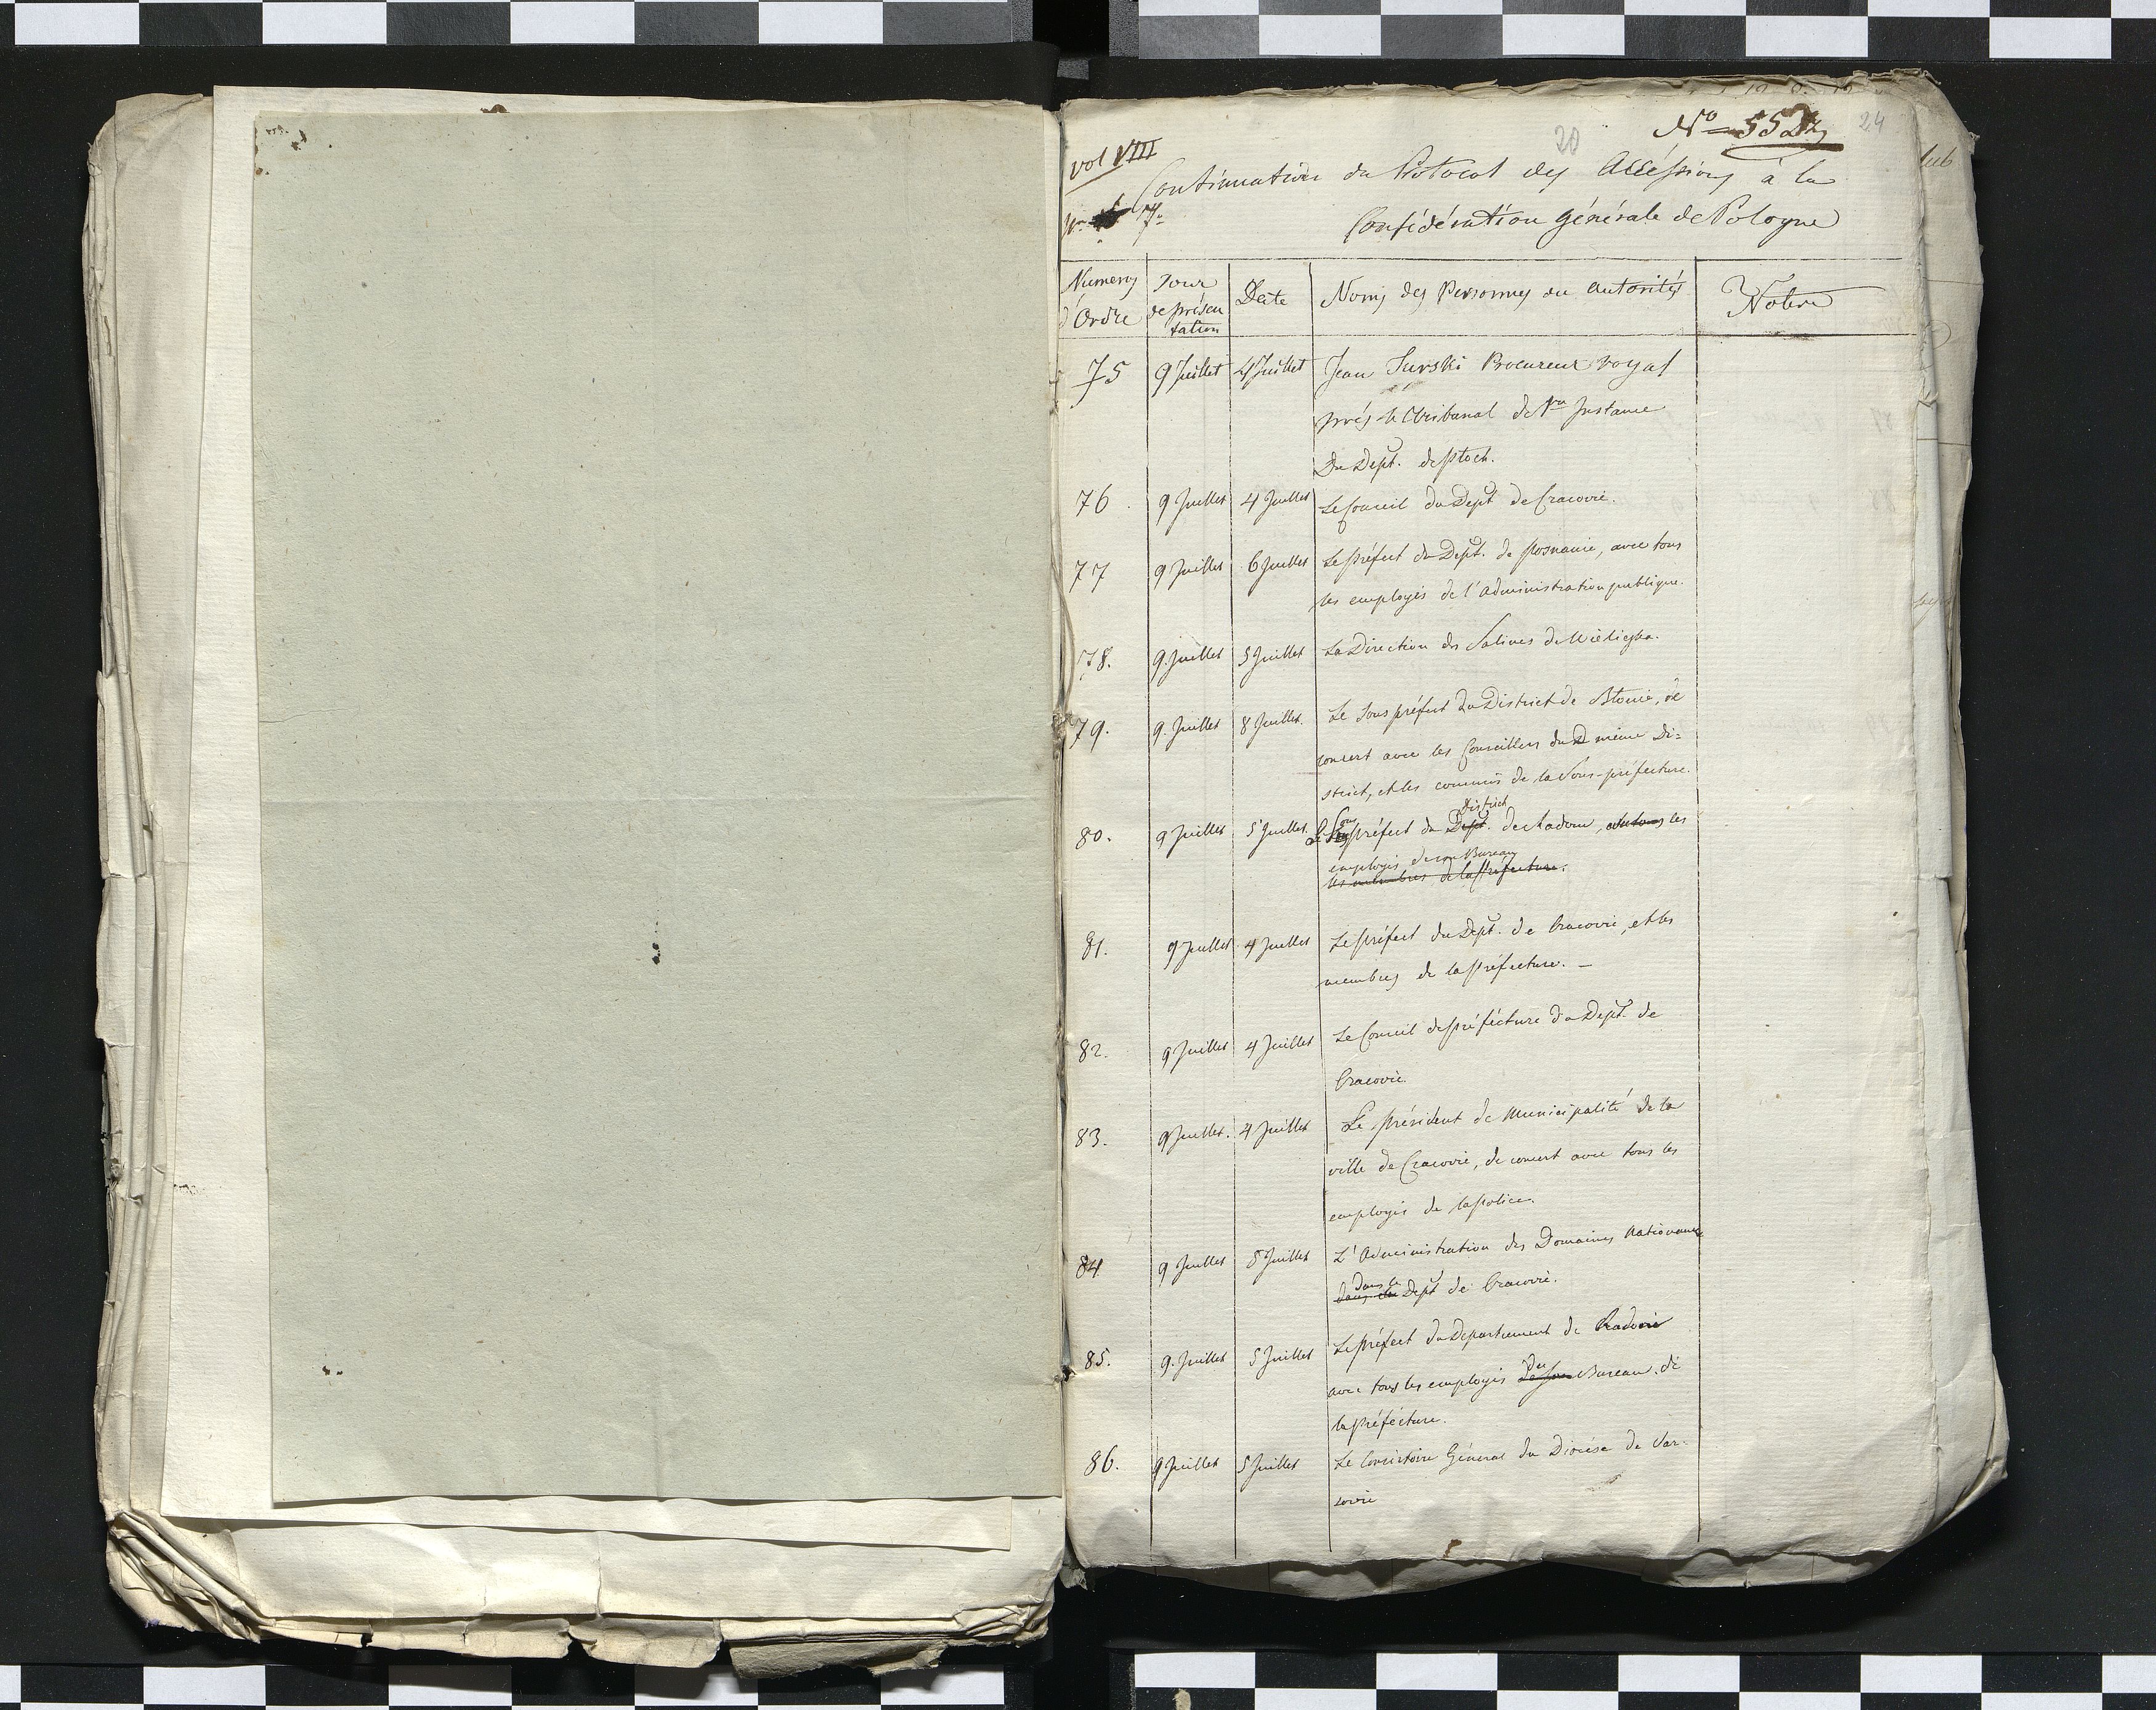 20
24
vol VIII
Continuation du Protocol des Accessions à la
7.
Confédération générale de Pologne
Numeros d'Ordre | Jour de présentation | Date | Noms des Personnes ou autorités | Notes
75 | 9 Juillet | 4 Juillet | Jean Turski Procureur royal
près le Tribunal de 1re Instance
Du Dept. de Plock.
76 | 9 Juillet | 4 Juillet | Le Conseil du Dept de Cracovie.
77 | 9 Juillet | 6 Juillet | Le préfect du Dept. de Posnanie, avec tous
les employés de l'administration publique.
78. | 9. Juillet | 5 Juillet | La Direction des Salines de Wieliczka.
79. | 9. Juillet | 8 Juillet. | Le Sous préfect du District de Błonie, de
concert avec les Conseillers du même Di=
strict, et les commis de la Sous-préfecture.
District
80. | 9 Juillet | 5 Juillet. | Le Sous préfect du Dept. de Radom, et tous les
employés de son Bureau
les membres de la Préfecture.
81. | 9 Juillet | 4 Juillet | Le préfect du Dept. de Cracovie, et les
membres de la préfecture. —
82. | 9 Juillet | 4 Juillet | Le Conseil de préfécture du Dept. de
Cracovie.
83. | 9 Juillet. | 4 Juillet | Le président de Municipalité de la
ville de Cracovie, de concert avec tous les
employés de la police.
84 | 9 Juillet | 5 Juillet | L'Administration des Domaines Nationaux
dans le
dans du Dept de Cracovie.
85. | 9. Juillet | 5 Juillet | Le préfect du Département de Radom
avec tous les employés du de son Bureau de
la préfécture.
86. | 9 Juillet | 5 Juillet | Le Consistoire Général du Diocése de Var-
sovie